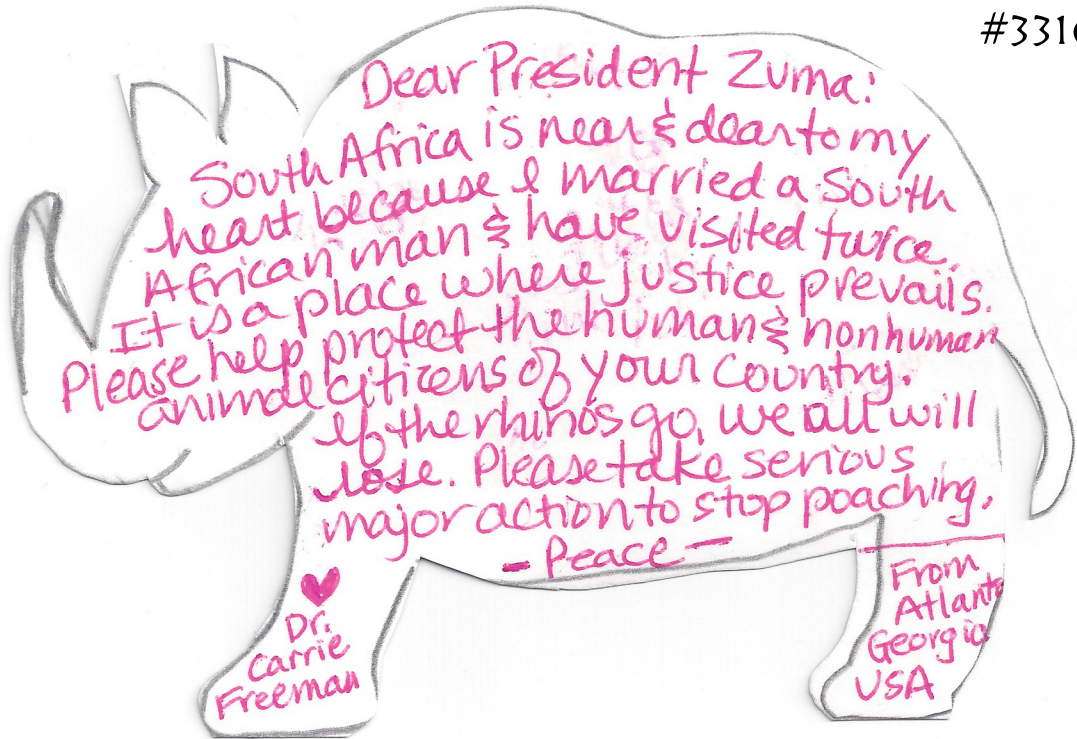 #331
Dear President Zuma:
South Africa is near & dear to my
heart because I married a South
African man & have visited twice.
It is a place where justice prevails.
Please help protect the human & nonhuman
animal citizens of your country.
If the rhinos go, we all will
lose. Please take serious
major action to stop poaching.
- Peace -
♥
Dr.
Carrie
Freeman
From
Atlanta
Georgia
USA